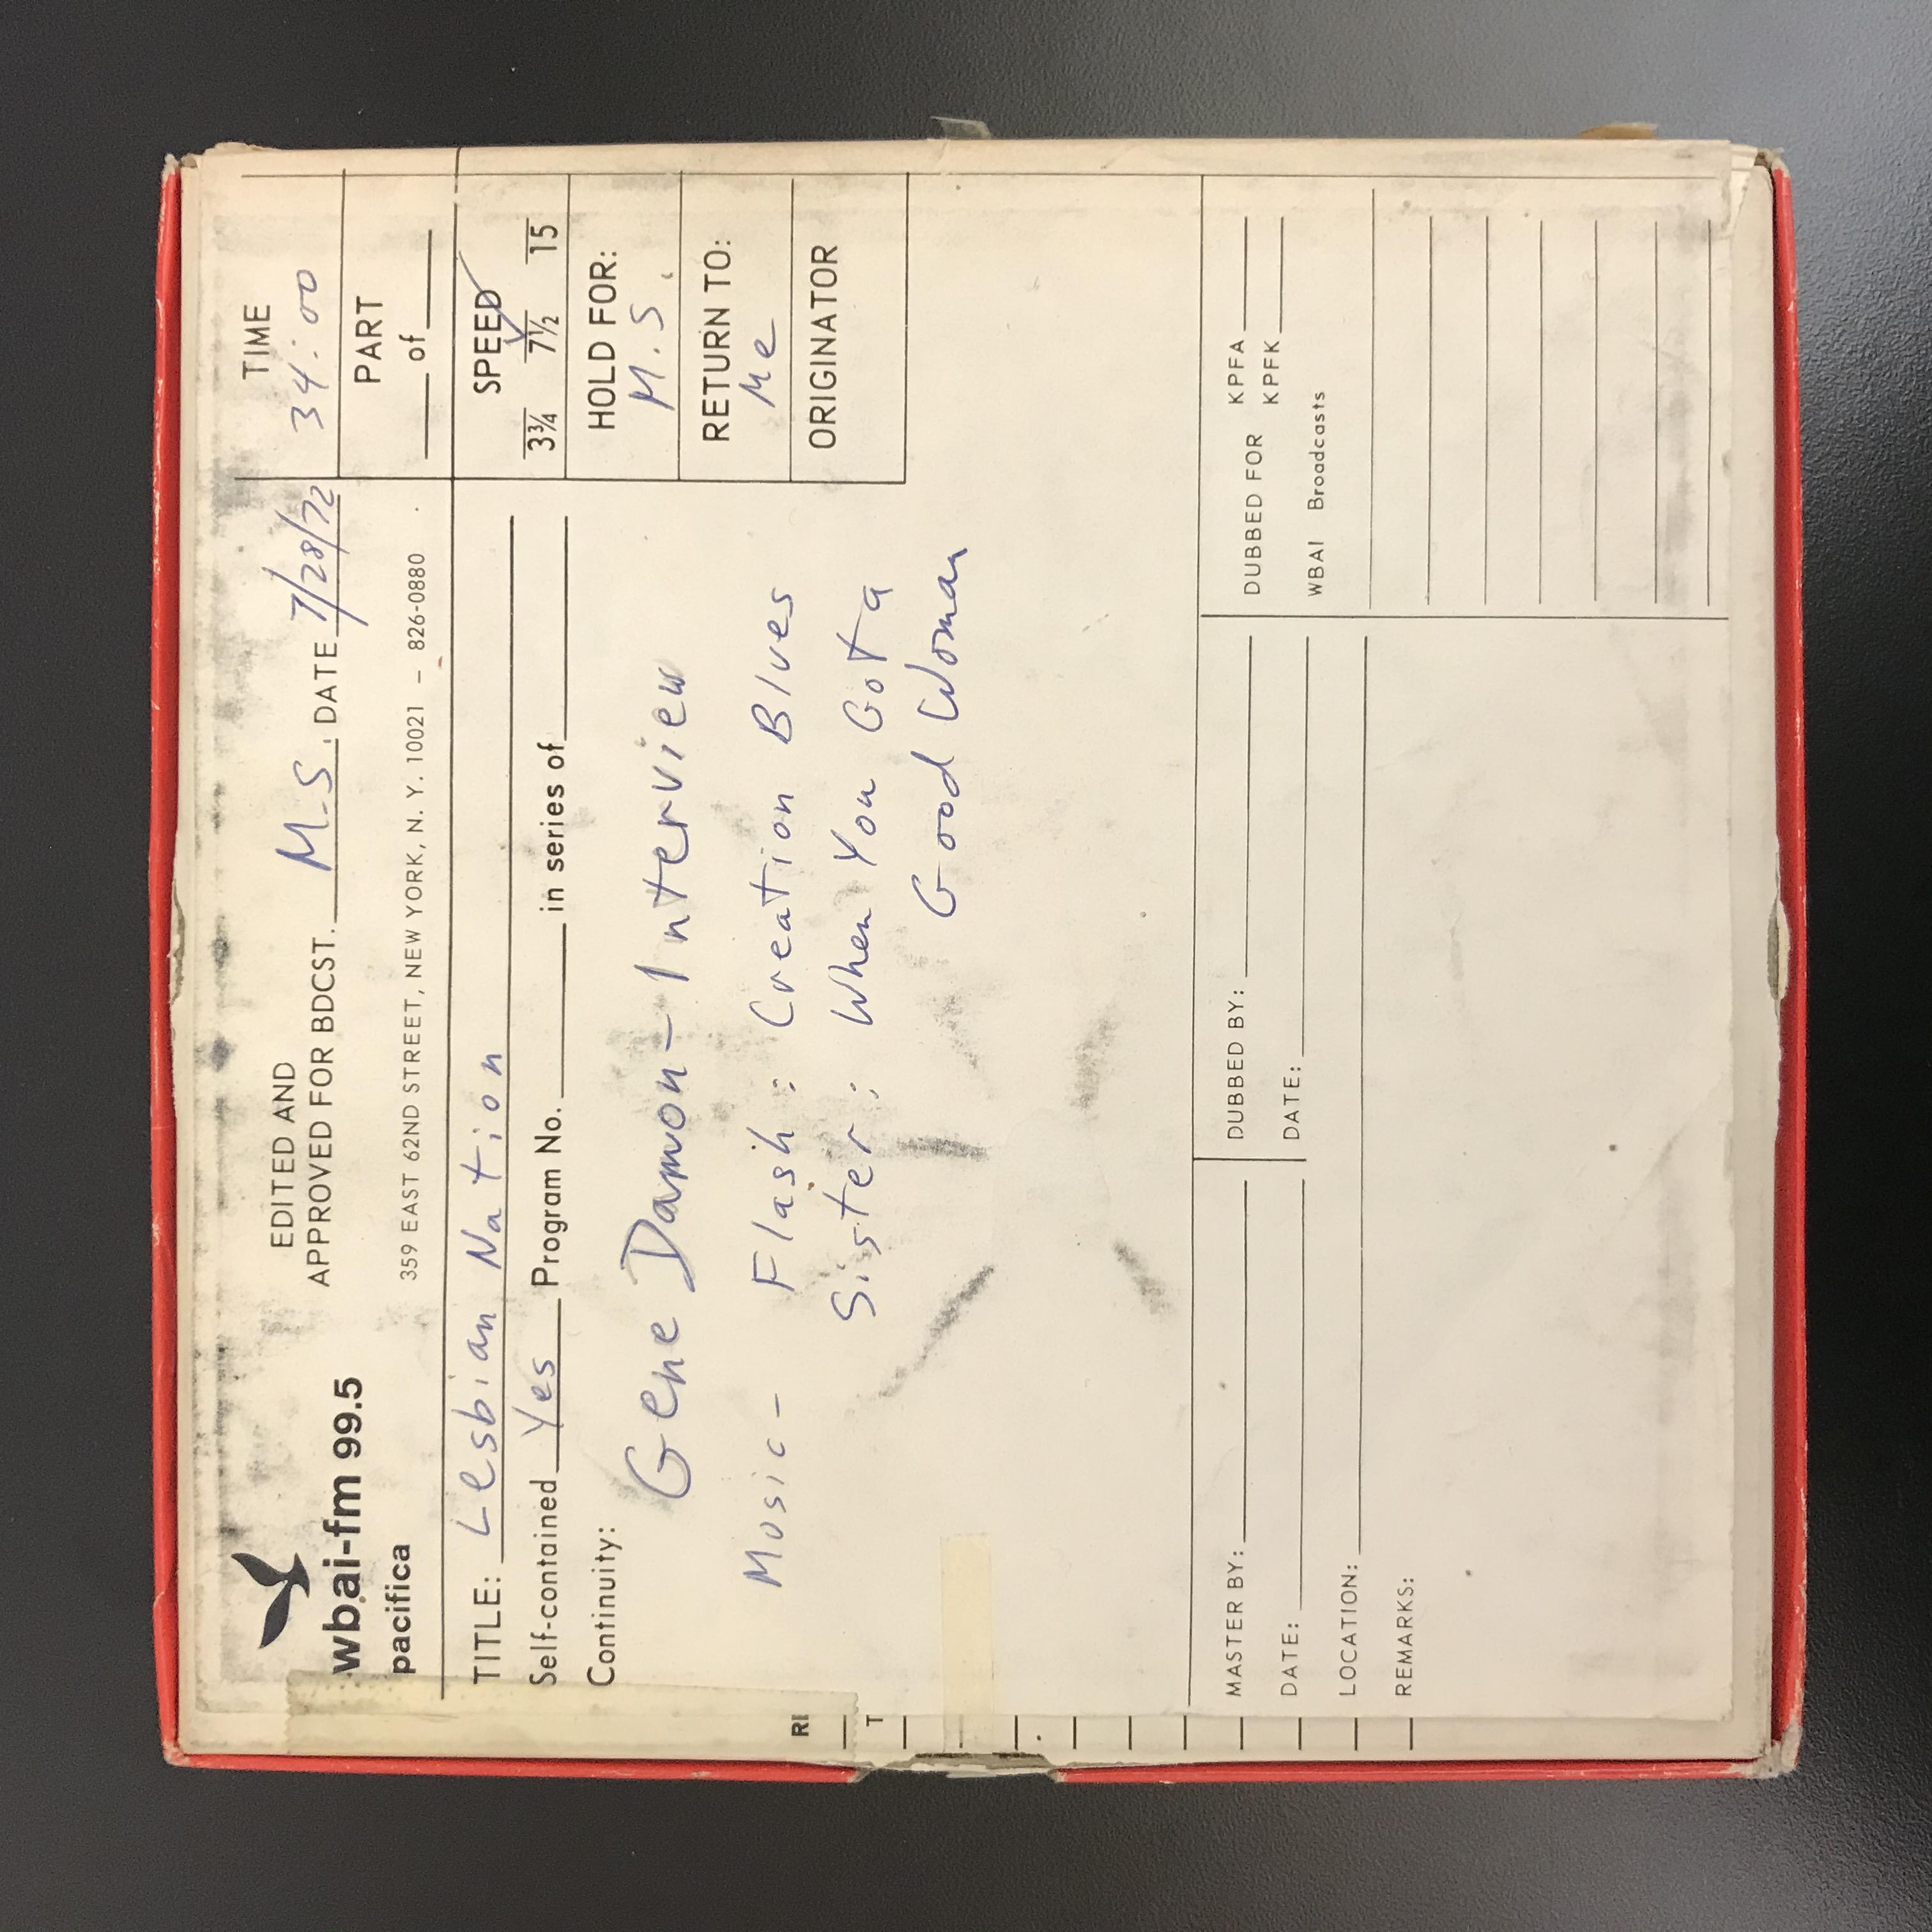 wbai-fm 99.5
pacifica
EDITED AND
APPROVED FOR BDCST. M.S. DATE 7/28/72
359 EAST 62ND STREET, NEW YORK, N. Y. 10021 – 826-0880
TIME
34:00
PART
of
TITLE: Lesbian Nation
Self-contained Yes Program No. in series of
SPEED
3¾ 7½ 15
Continuity:
HOLD FOR:
M.S.
Gene Damon – Interview
RETURN TO:
Me
Music – Flash : Creation Blues
ORIGINATOR
Sister : When You Got a
Good Woman
RI
T
MASTER BY: DUBBED BY: DUBBED FOR KPFA
DATE: DATE: KPFK
LOCATION: WBAI Broadcasts
REMARKS: